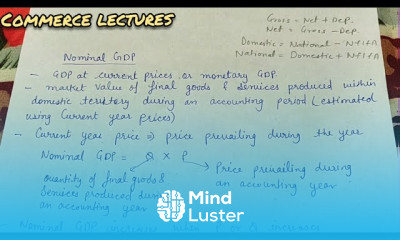 COMMERCE LECTURES
Gross = Net + Dep.
Net = Gross - Dep.
Domestic = National - NFIFA
National = Domestic + NFIFA
Nominal GDP
- GDP at current prices or monetary GDP.
- market value of final goods & services produced within
domestic territory during an accounting period (estimated
using current year prices)
- Current year price => price prevailing during the year
Nominal GDP = Q X P
quantity of final goods &
services produced during
an accounting year
Price prevailing during
an accounting year
Mind
Luster
- Nominal GDP increases when P or Q increases